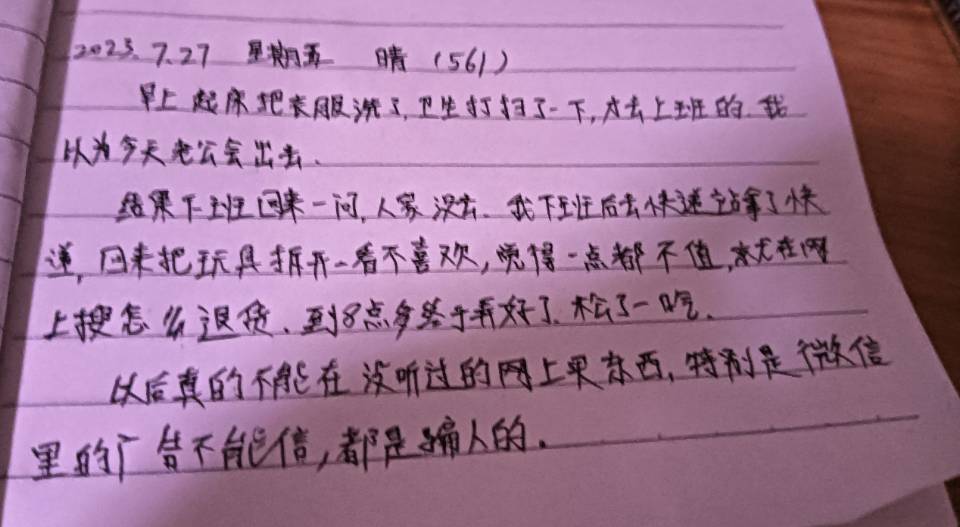 2023.7.27 星期五 晴(561)
早上起床把衣服洗了,卫生打扫了一下,才去上班的.我
以为今天老公会出去.
结果下班回来一问,人家没去.我下班后去快递站拿了快
递,回来把玩具拆开一看不喜欢,觉得一点都不值,就在网
上搜怎么退货.到8点多终于弄好了.松了一口气.
以后真的不能在没听过的网上买东西,特别是微信
里的广告不能信,都是骗人的.